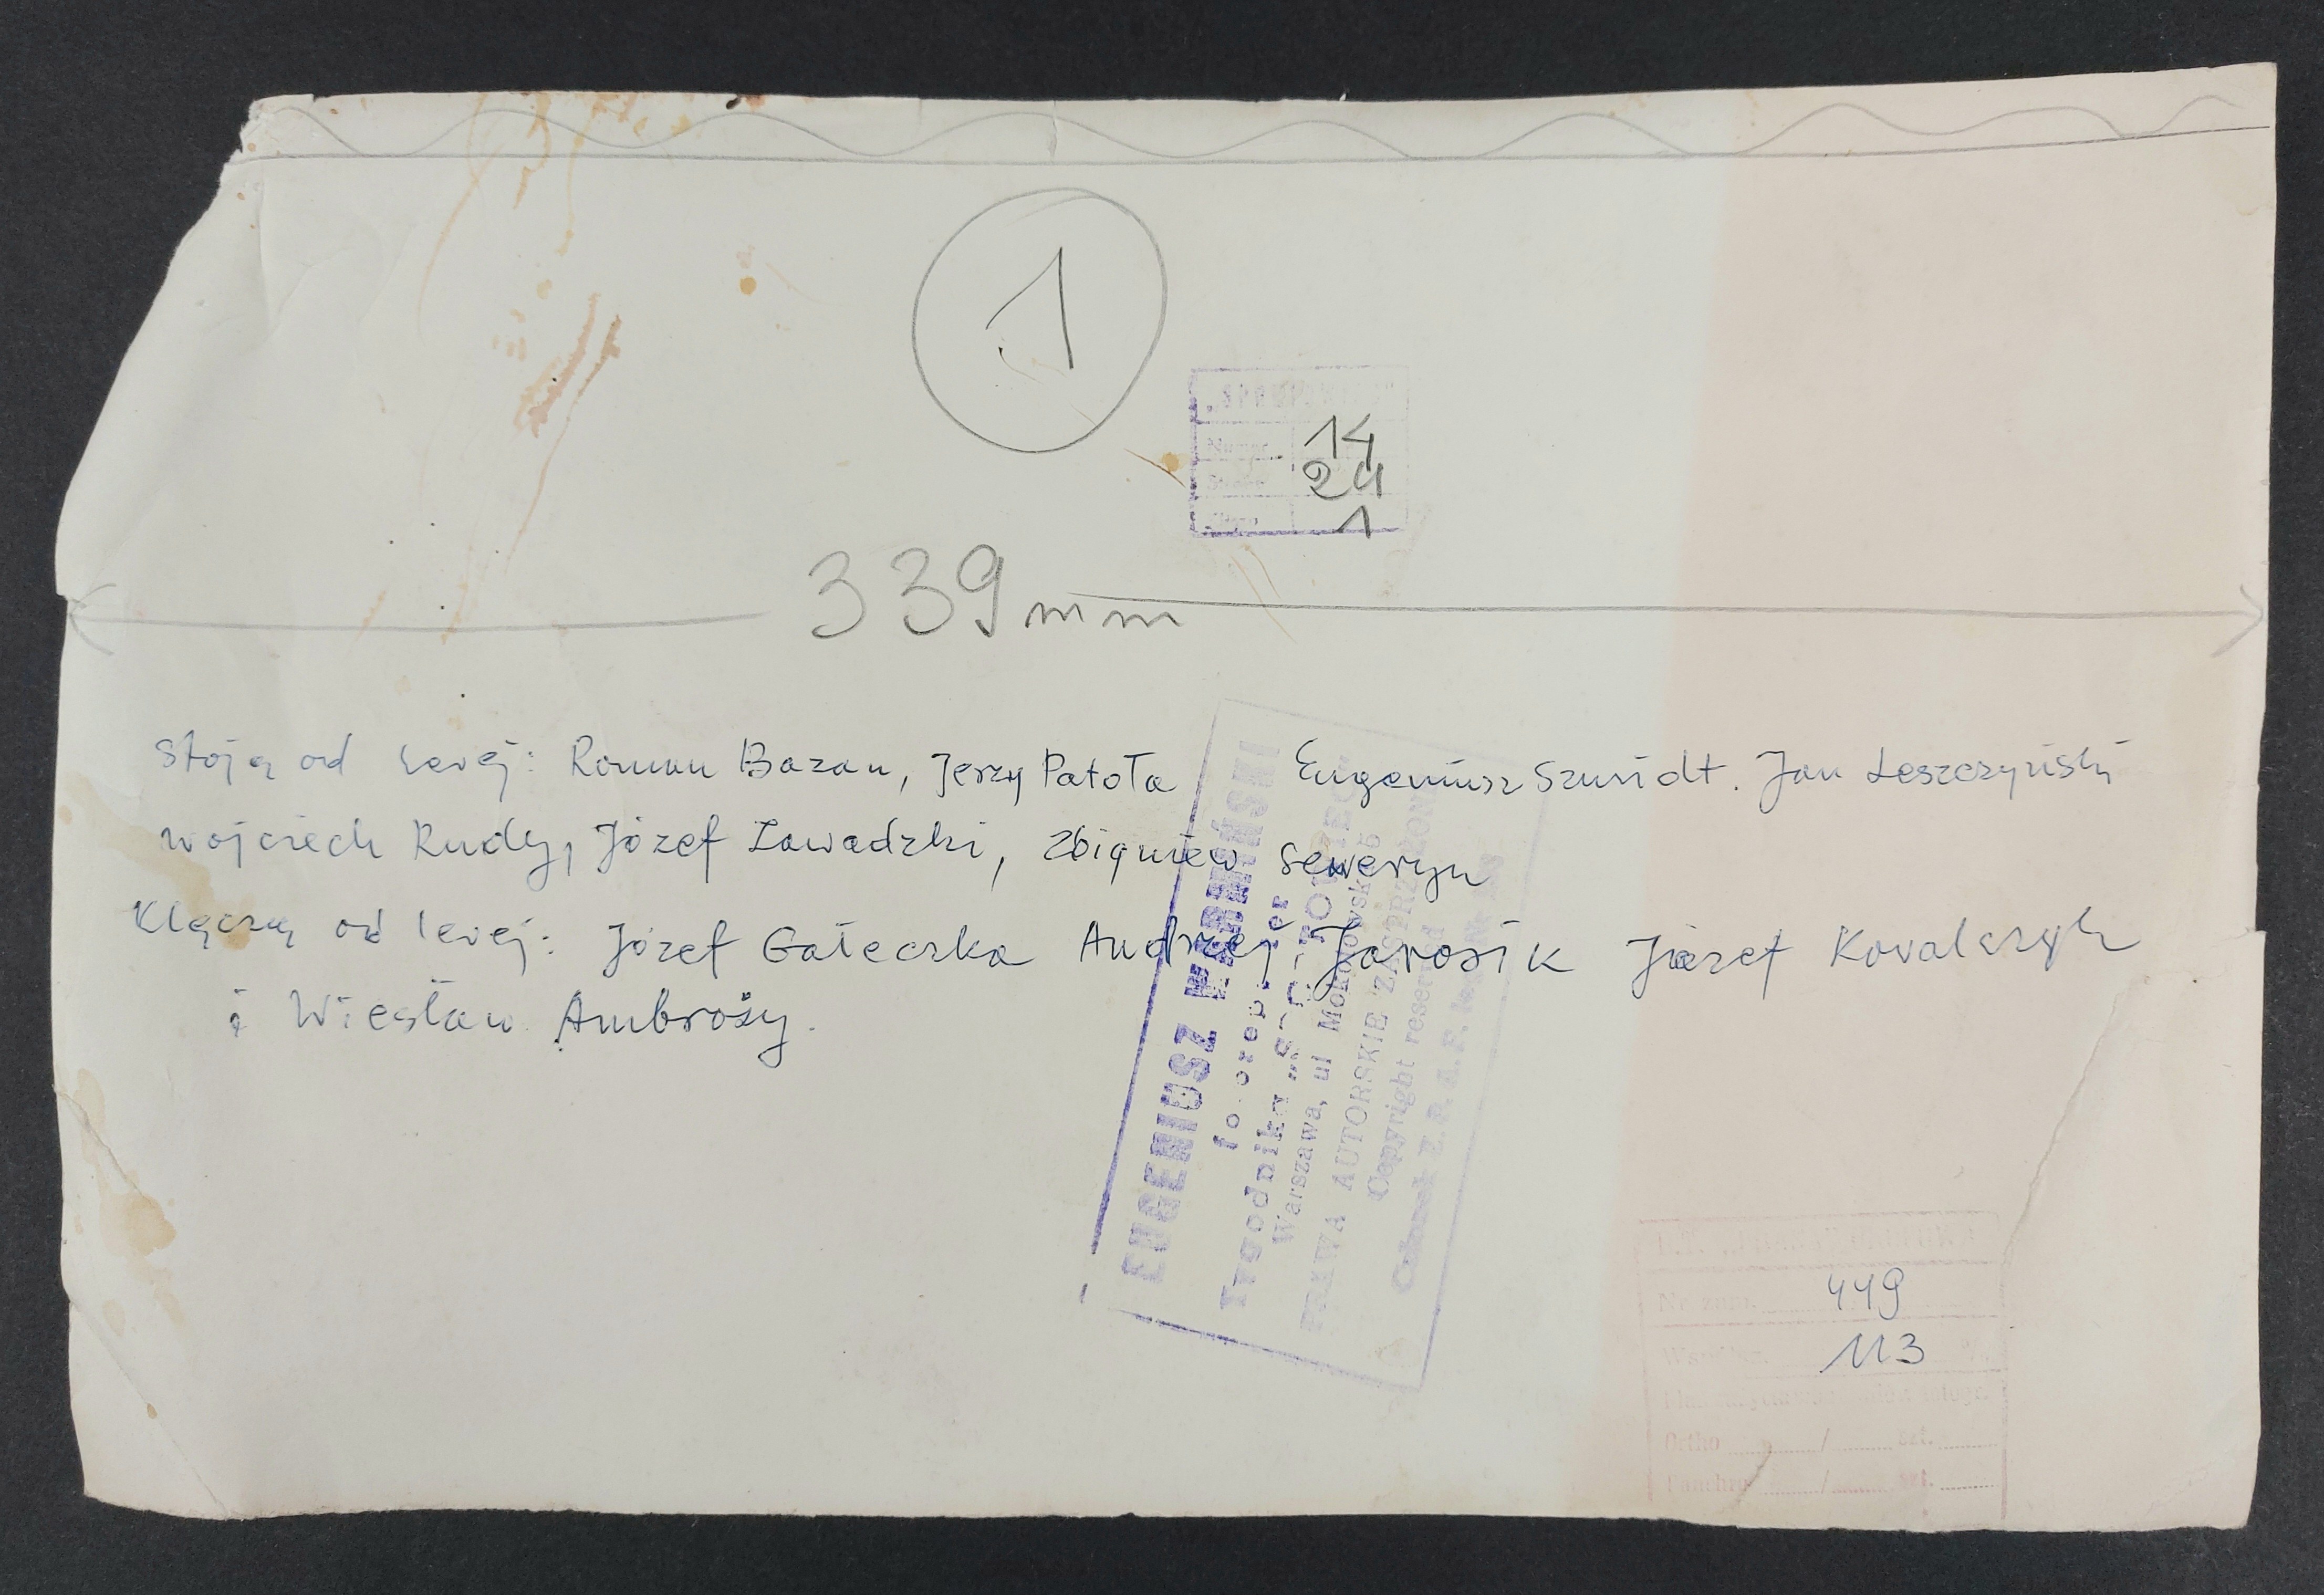 1
14
24
1
339 mm
Stoją od lewej: Roman Bazan, Jerzy Patoła Eugeniusz Szmidt. Jan Leszczyński
Wojciech Rudy, Józef Zawadzki, Zbigniew Seweryn
Klęczą od lewej: Józef Gałeczka Andrzej Jarosik Józef Kowalczyk
i Wiesław Ambroży.
EUGENIUSZ WARMIŃSKI
fotoreporter
Tygodnika "SPORTOWIEC"
Warszawa, ul Mokotowska
PRAWA AUTORSKIE ZASTRZEŻONE
Copyright reserved
Członek Z.P.A.F.
449
113
Ortho / szt.
Panchro / szt.